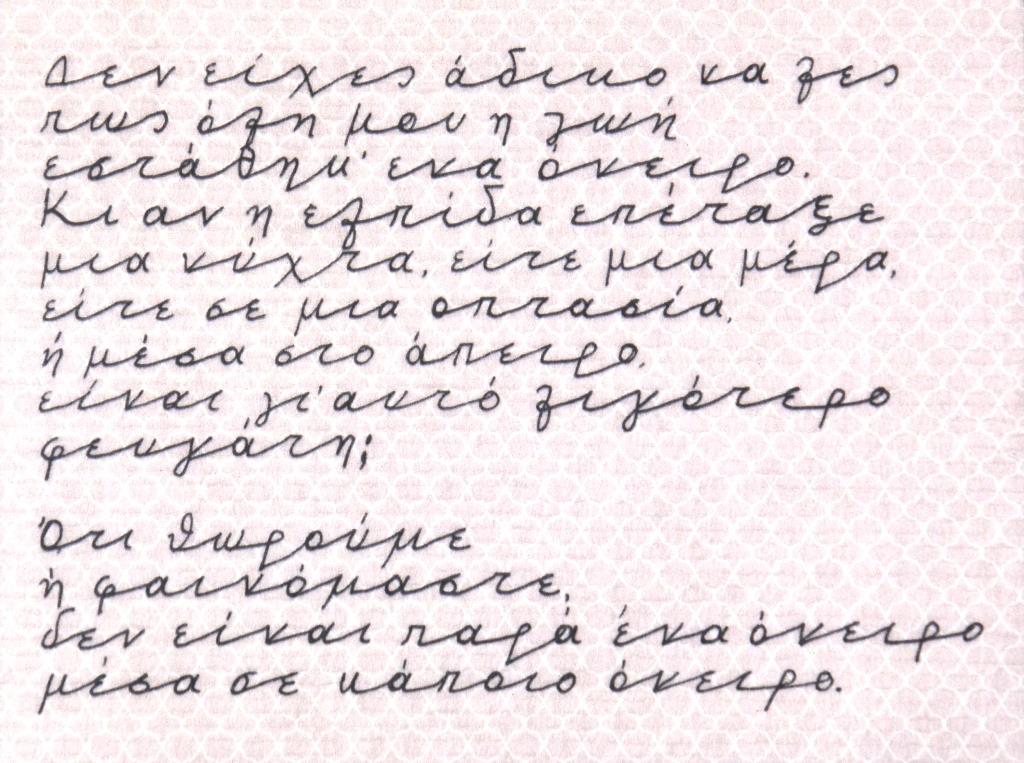 Δεν είχες άδικο να λες
πως όλη μου η ζωή
εστάθηκ' ενα όνειρο.
Κι αν η ελπίδα επέταξε
μια νύχτα, είτε μια μέρα,
είτε σε μια οπτασία,
ή μέσα στο άπειρο,
είναι γι' αυτό λιγότερο
φευγάτη;
Ότι θωρούμε
ή φαινόμαστε,
δεν είναι παρά ένα όνειρο
μέσα σε κάποιο όνειρο.